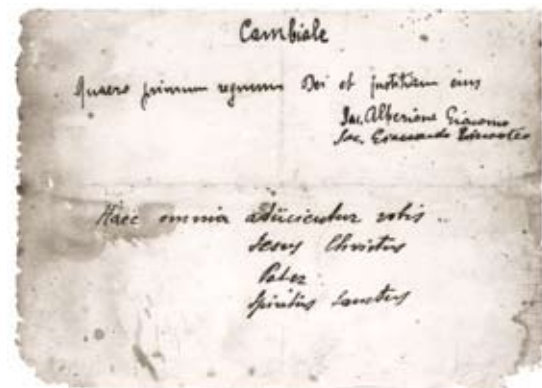 Cambiale
Quaero primum regnum Dei et justitiam eius
Sac. Alberione Giacomo
Sac. Giaccardo Timoteo
Haec omnia adiicientur vobis ..
Jesus Christus
Pater
Spiritus Sanctus